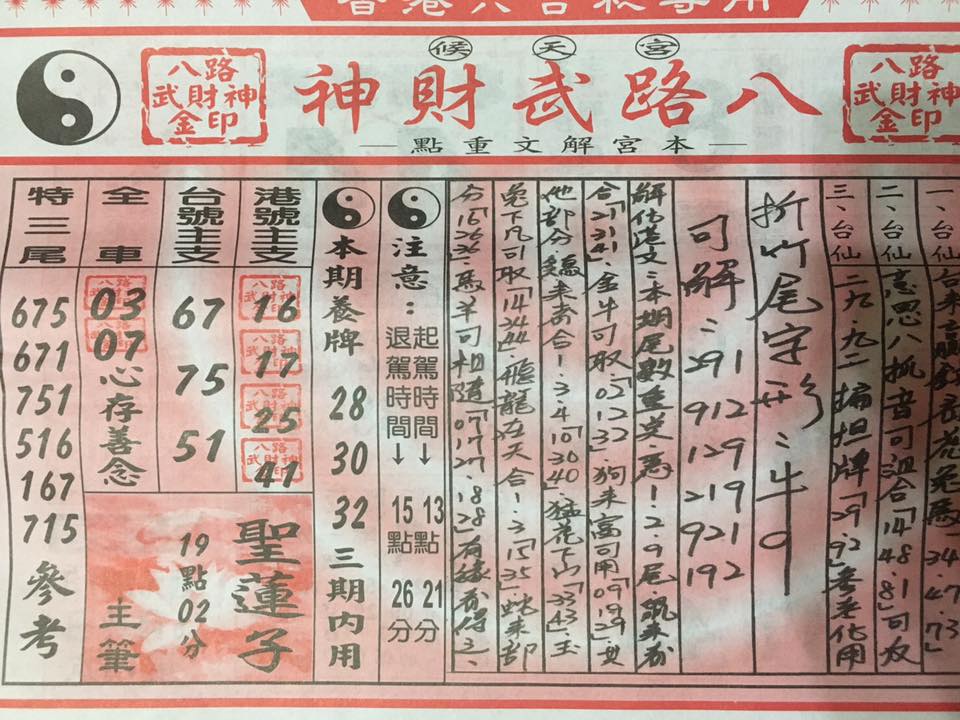 香港六合秘專用
八路
武財神
金印
候天宮
八路武財神
八路
武財神
金印
本宮解文重點
一、台仙
二、台仙
意思八抓者可混合「14 48 81 8」可取
三、台仙
二九、九二扁担牌「29.92」參考化用
折竹尾字形:牛9
可解:291 912 129 219 921 192
解化港文:本期尾數重英應!2.9尾.鼠來
合「21 31 41」.金牛可取「02 12 32」.狗來富可用「09 19 29」.其
他部分雞來合!3 4「10 30 40」猛虎下山「33 43」.玉
兔下凡可取「14 34 44」.飛龍在天合!3「15 35」.蛇來部
分「16 26 36」.馬羊可相隨「07 17 27.18 28」有緣
注意:
起駕時間↓13點21分
退駕時間↓15點26分
本期養牌 28 30 32 三期內用
港號主支
16
17
25
41
台號主支
67
75
51
全車
03
07
心存善念
聖蓮子
19點02分
主筆
特三尾
675
671
751
516
167
715
參考